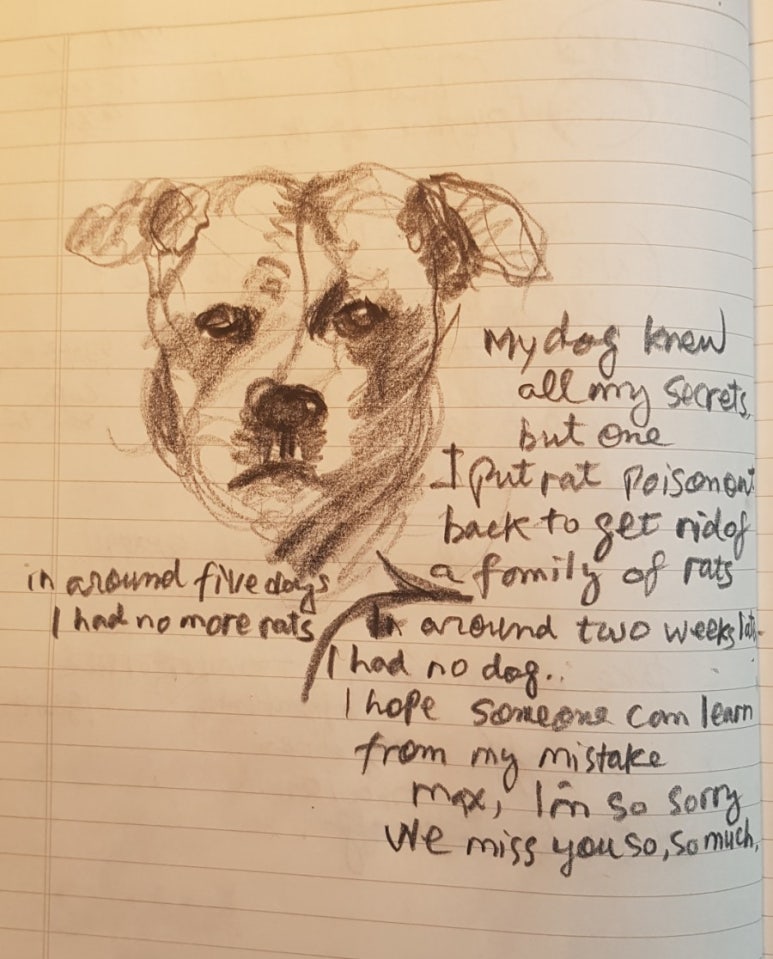 My dog knew
all my secrets,
but one
I put rat poison out
back to get rid of
a family of rats
in around five days
I had no more rats
In around two weeks later
I had no dog..
I hope someone can learn
from my mistake
Max, I'm so sorry
We miss you so, so much,